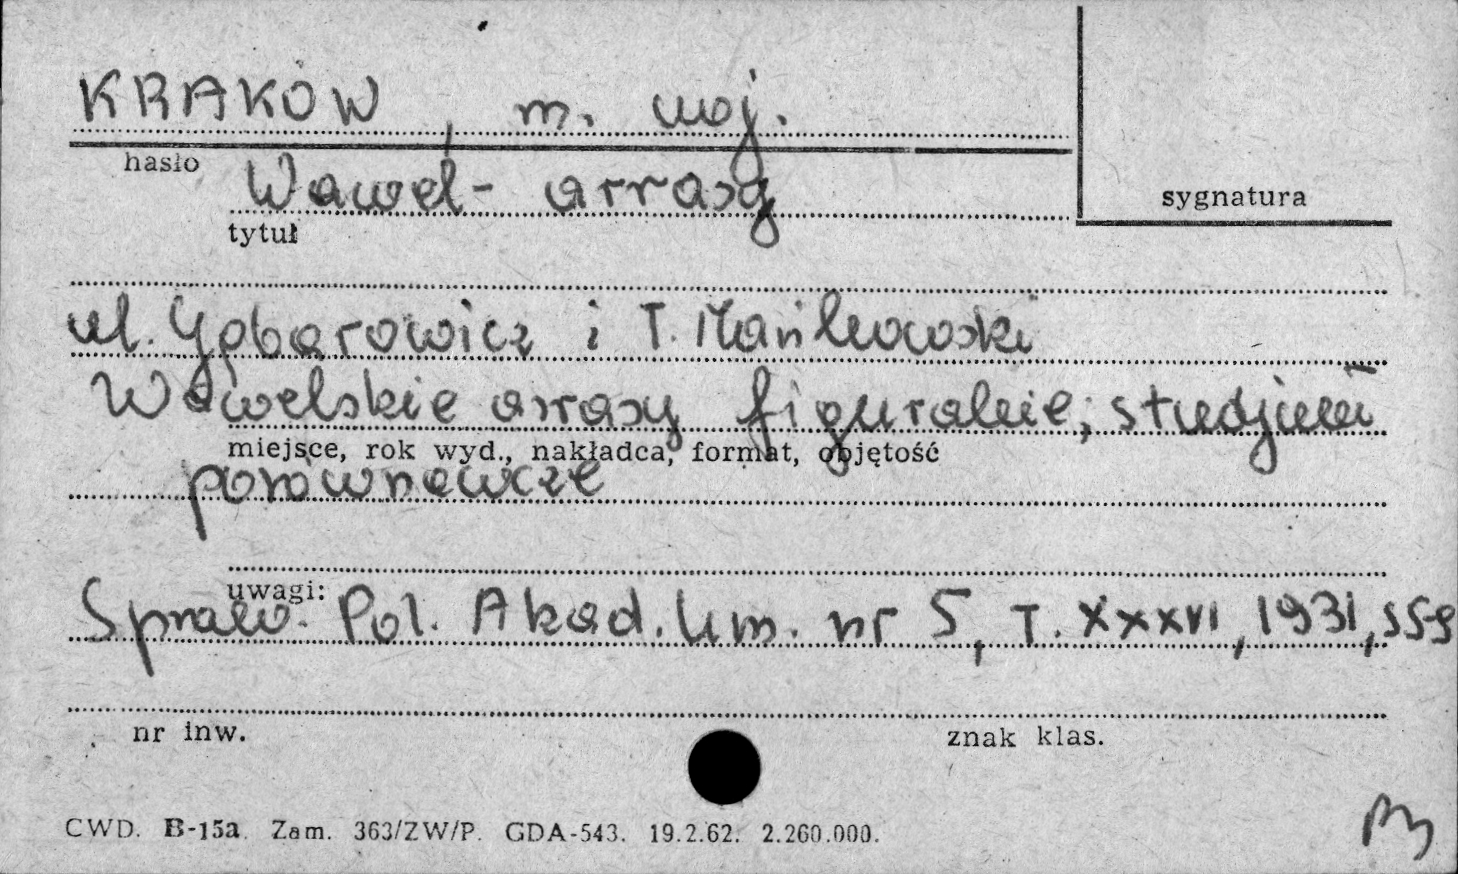 KRAKÓW, m. woj.
hasło
sygnatura
Wawel - arrasy
tytuł
M. Gębarowicz i T. Mańkowski
Wawelskie arrasy figuralne, studjum
miejsce, rok wyd., nakładca, format, objętość
porównawcze
uwagi:
Spraw. Pol. Akad. Um. nr 5, T. XXXVI, 1931, s 5-9
nr inw.
znak klas.
CWD. B-15a. Zam. 363/ZW/P. GDA-543. 19.2.62. 2.260.000.